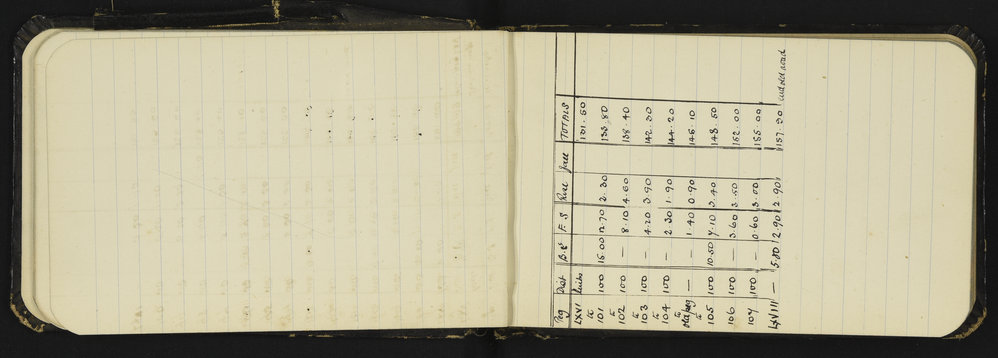 Peg Dist B.S F.S Rise Fall TOTALS
LXVI links 131.50
to
101 100 15.00 12.70 2.30 133.80
to
102 100 — 8.10 4.60 138.40
to
103 100 — 4.20 3.90 142.30
to
104 100 — 2.30 1.90 144.20
to
old peg — — 1.40 0.90 145.10
to
105 100 10.50 7.10 3.40 148.50
106 100 — 3.60 3.50 152.00
107 100 — 0.60 3.00 155.00
LXVIII — 5.80 2.90 2.90 157.90 old road